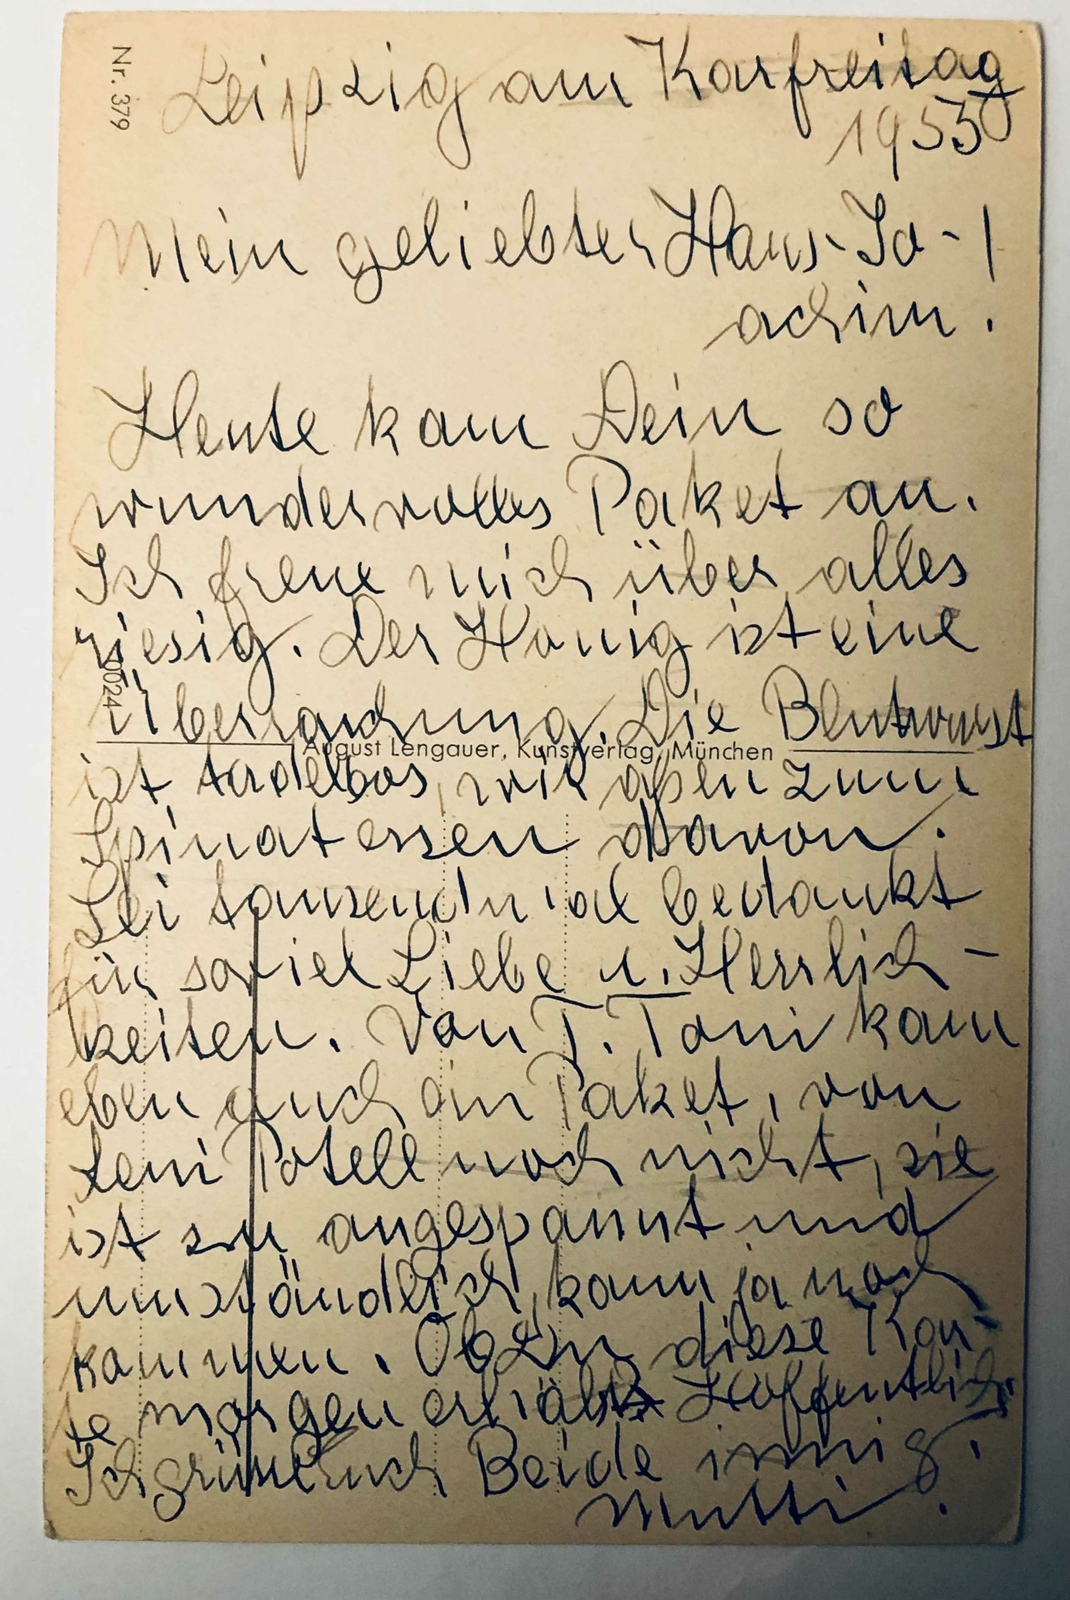 Nr. 379
Leipzig am Karfreitag
1953
Mein geliebter Hans-Jo-
achim!
Heute kam Dein so
wundervolles Paket an.
Ich freue mich über alles
riesig. Der Honig ist eine
0024
Überraschung. Die Blutwurst
August Lengauer, Kunstverlag, München
ist tadellos, wir aßen zum
Spinatessen davon.
Sei tausendmal bedankt
für soviel Liebe u. Herrlich-
keiten. Von T. Toni kam
eben auch ein Paket, von
Leni noch nicht, sie
ist zu angespannt und
umständlich, kann ja noch
kommen. Ob Du diese Kar-
te morgen erhältst? Hoffentlich.
Ich grüße Euch Beide innig.
Mutti.